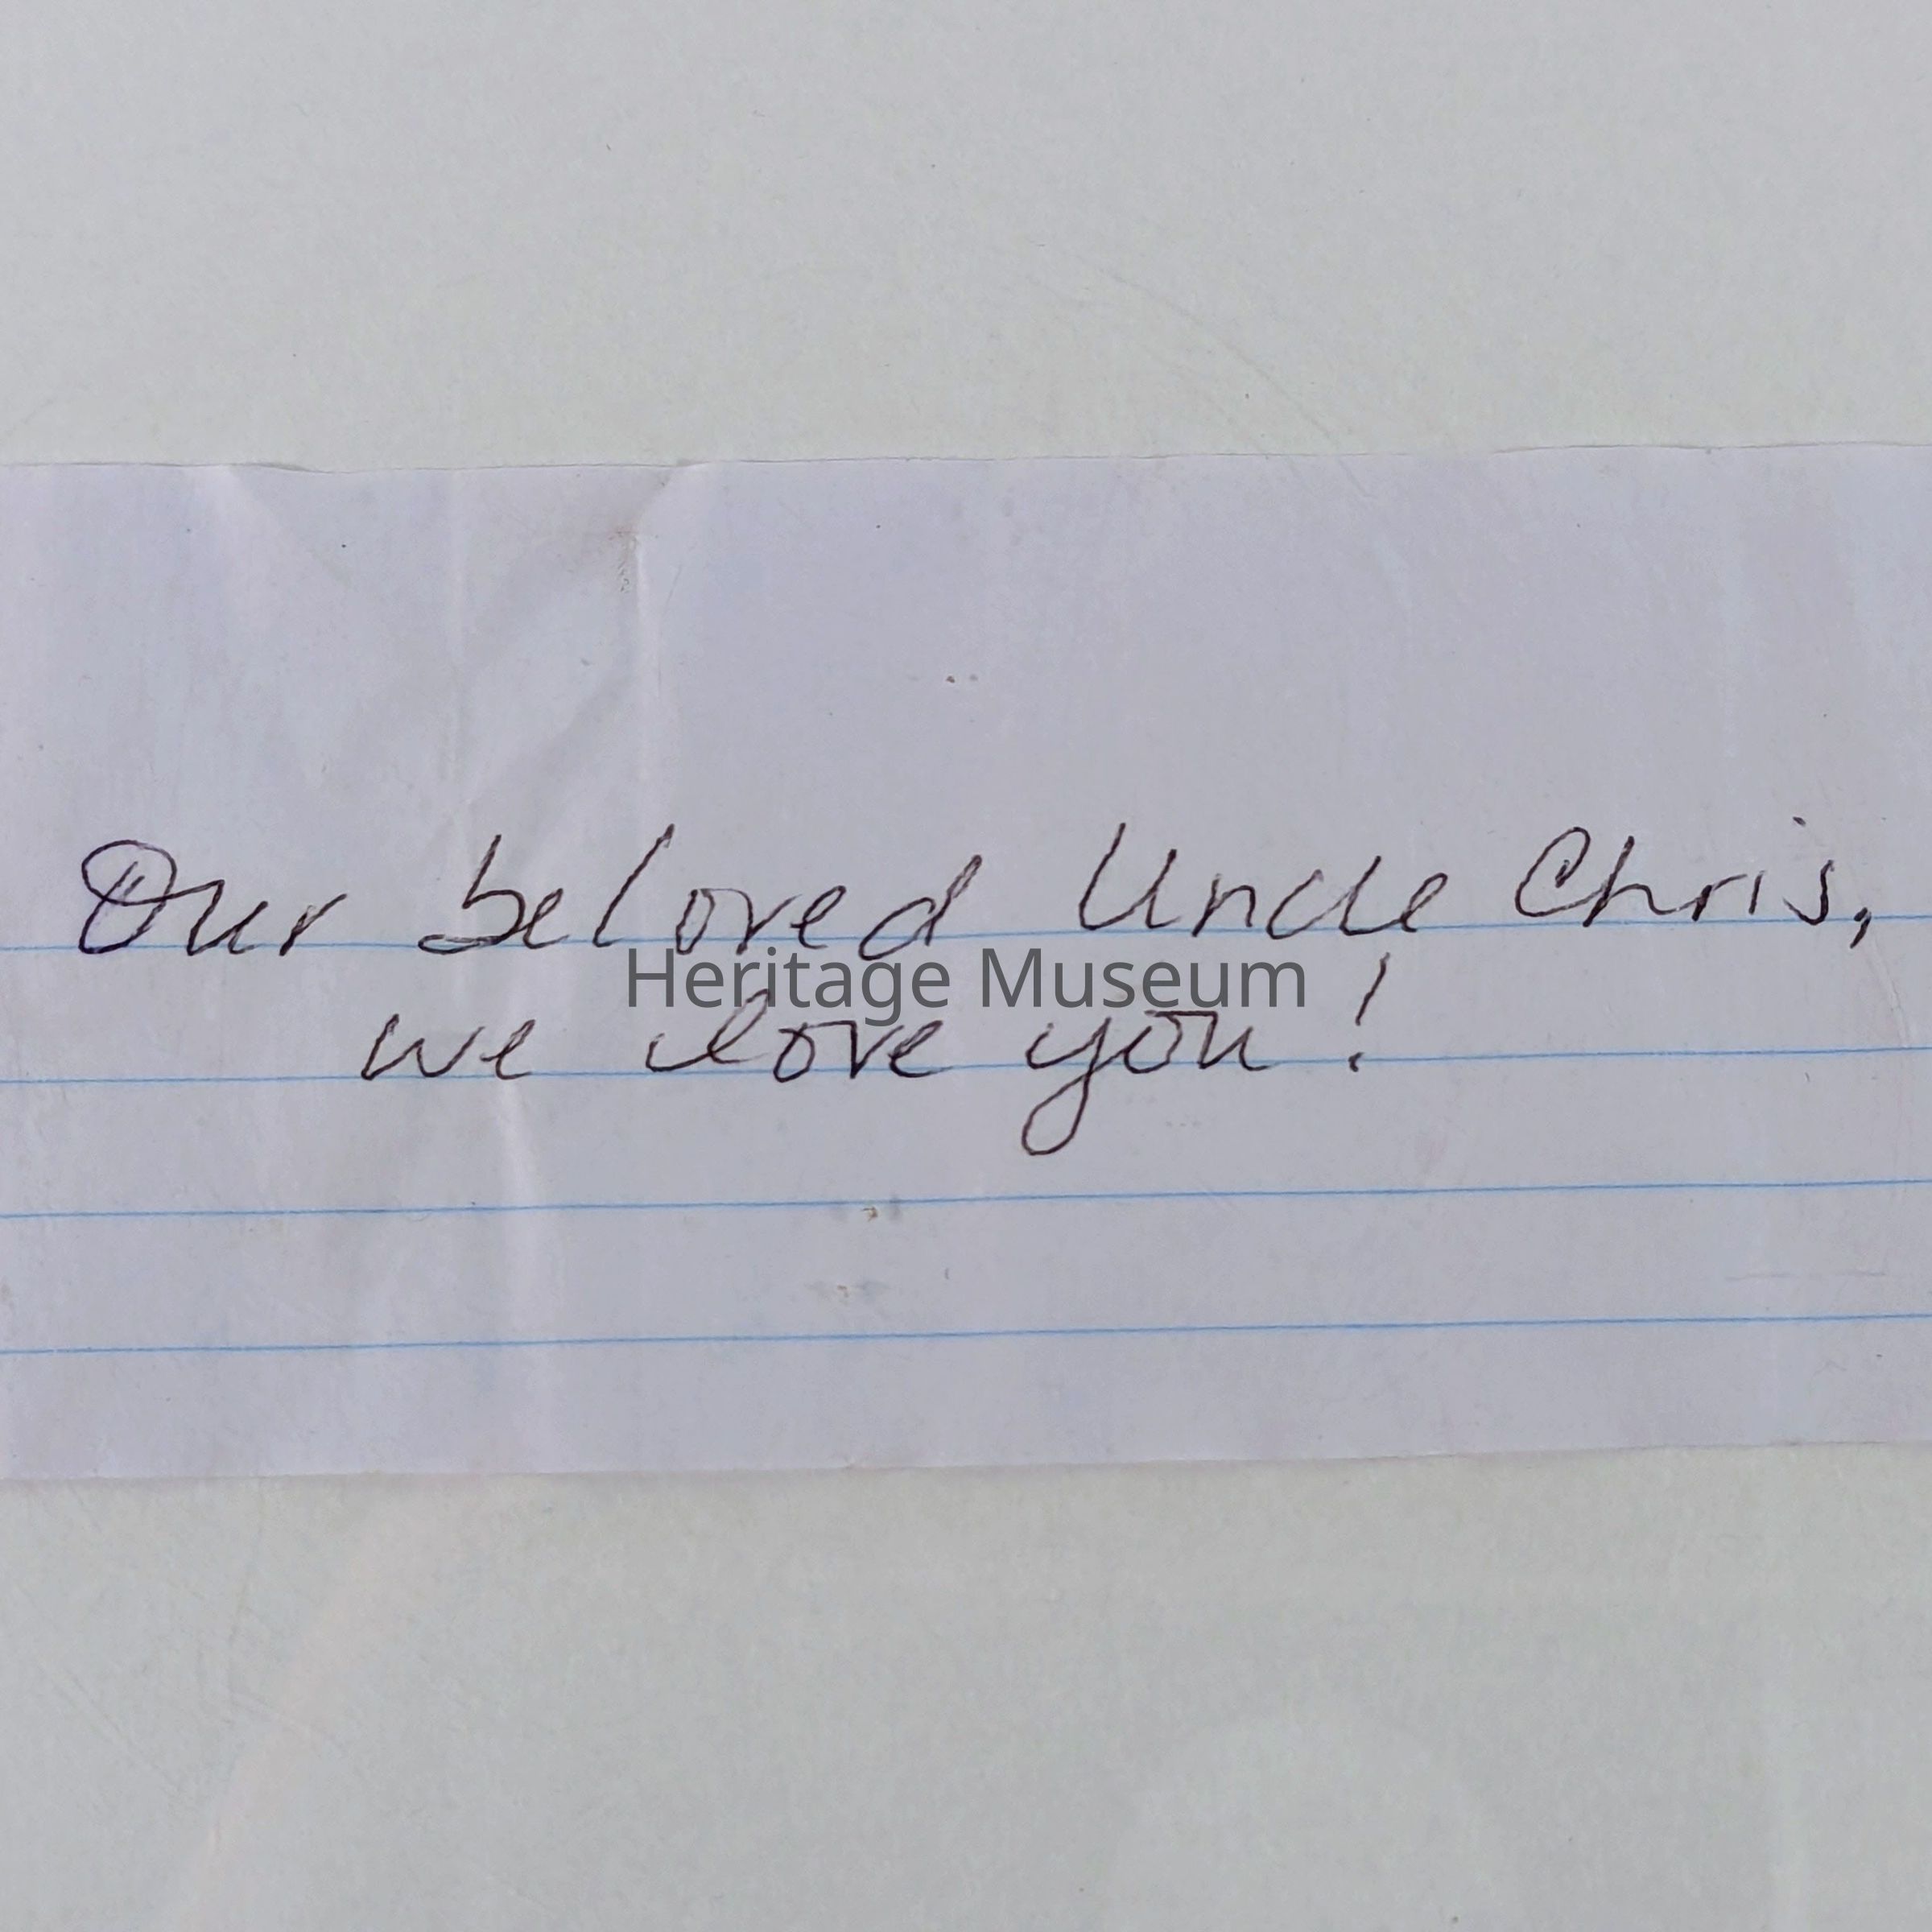 Our beloved Uncle Chris,
Heritage Museum
we love you!